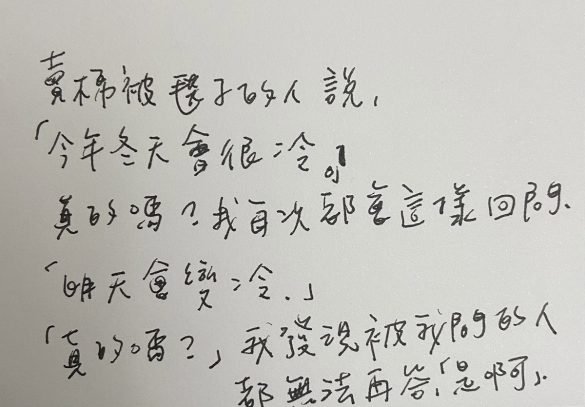 賣棉被毯子的人說,
「今年冬天會很冷。」
真的嗎?我每次都會這樣回問.
「明天會變冷.」
「真的嗎?」我發現被我問的人
都無法再答「是啊」.